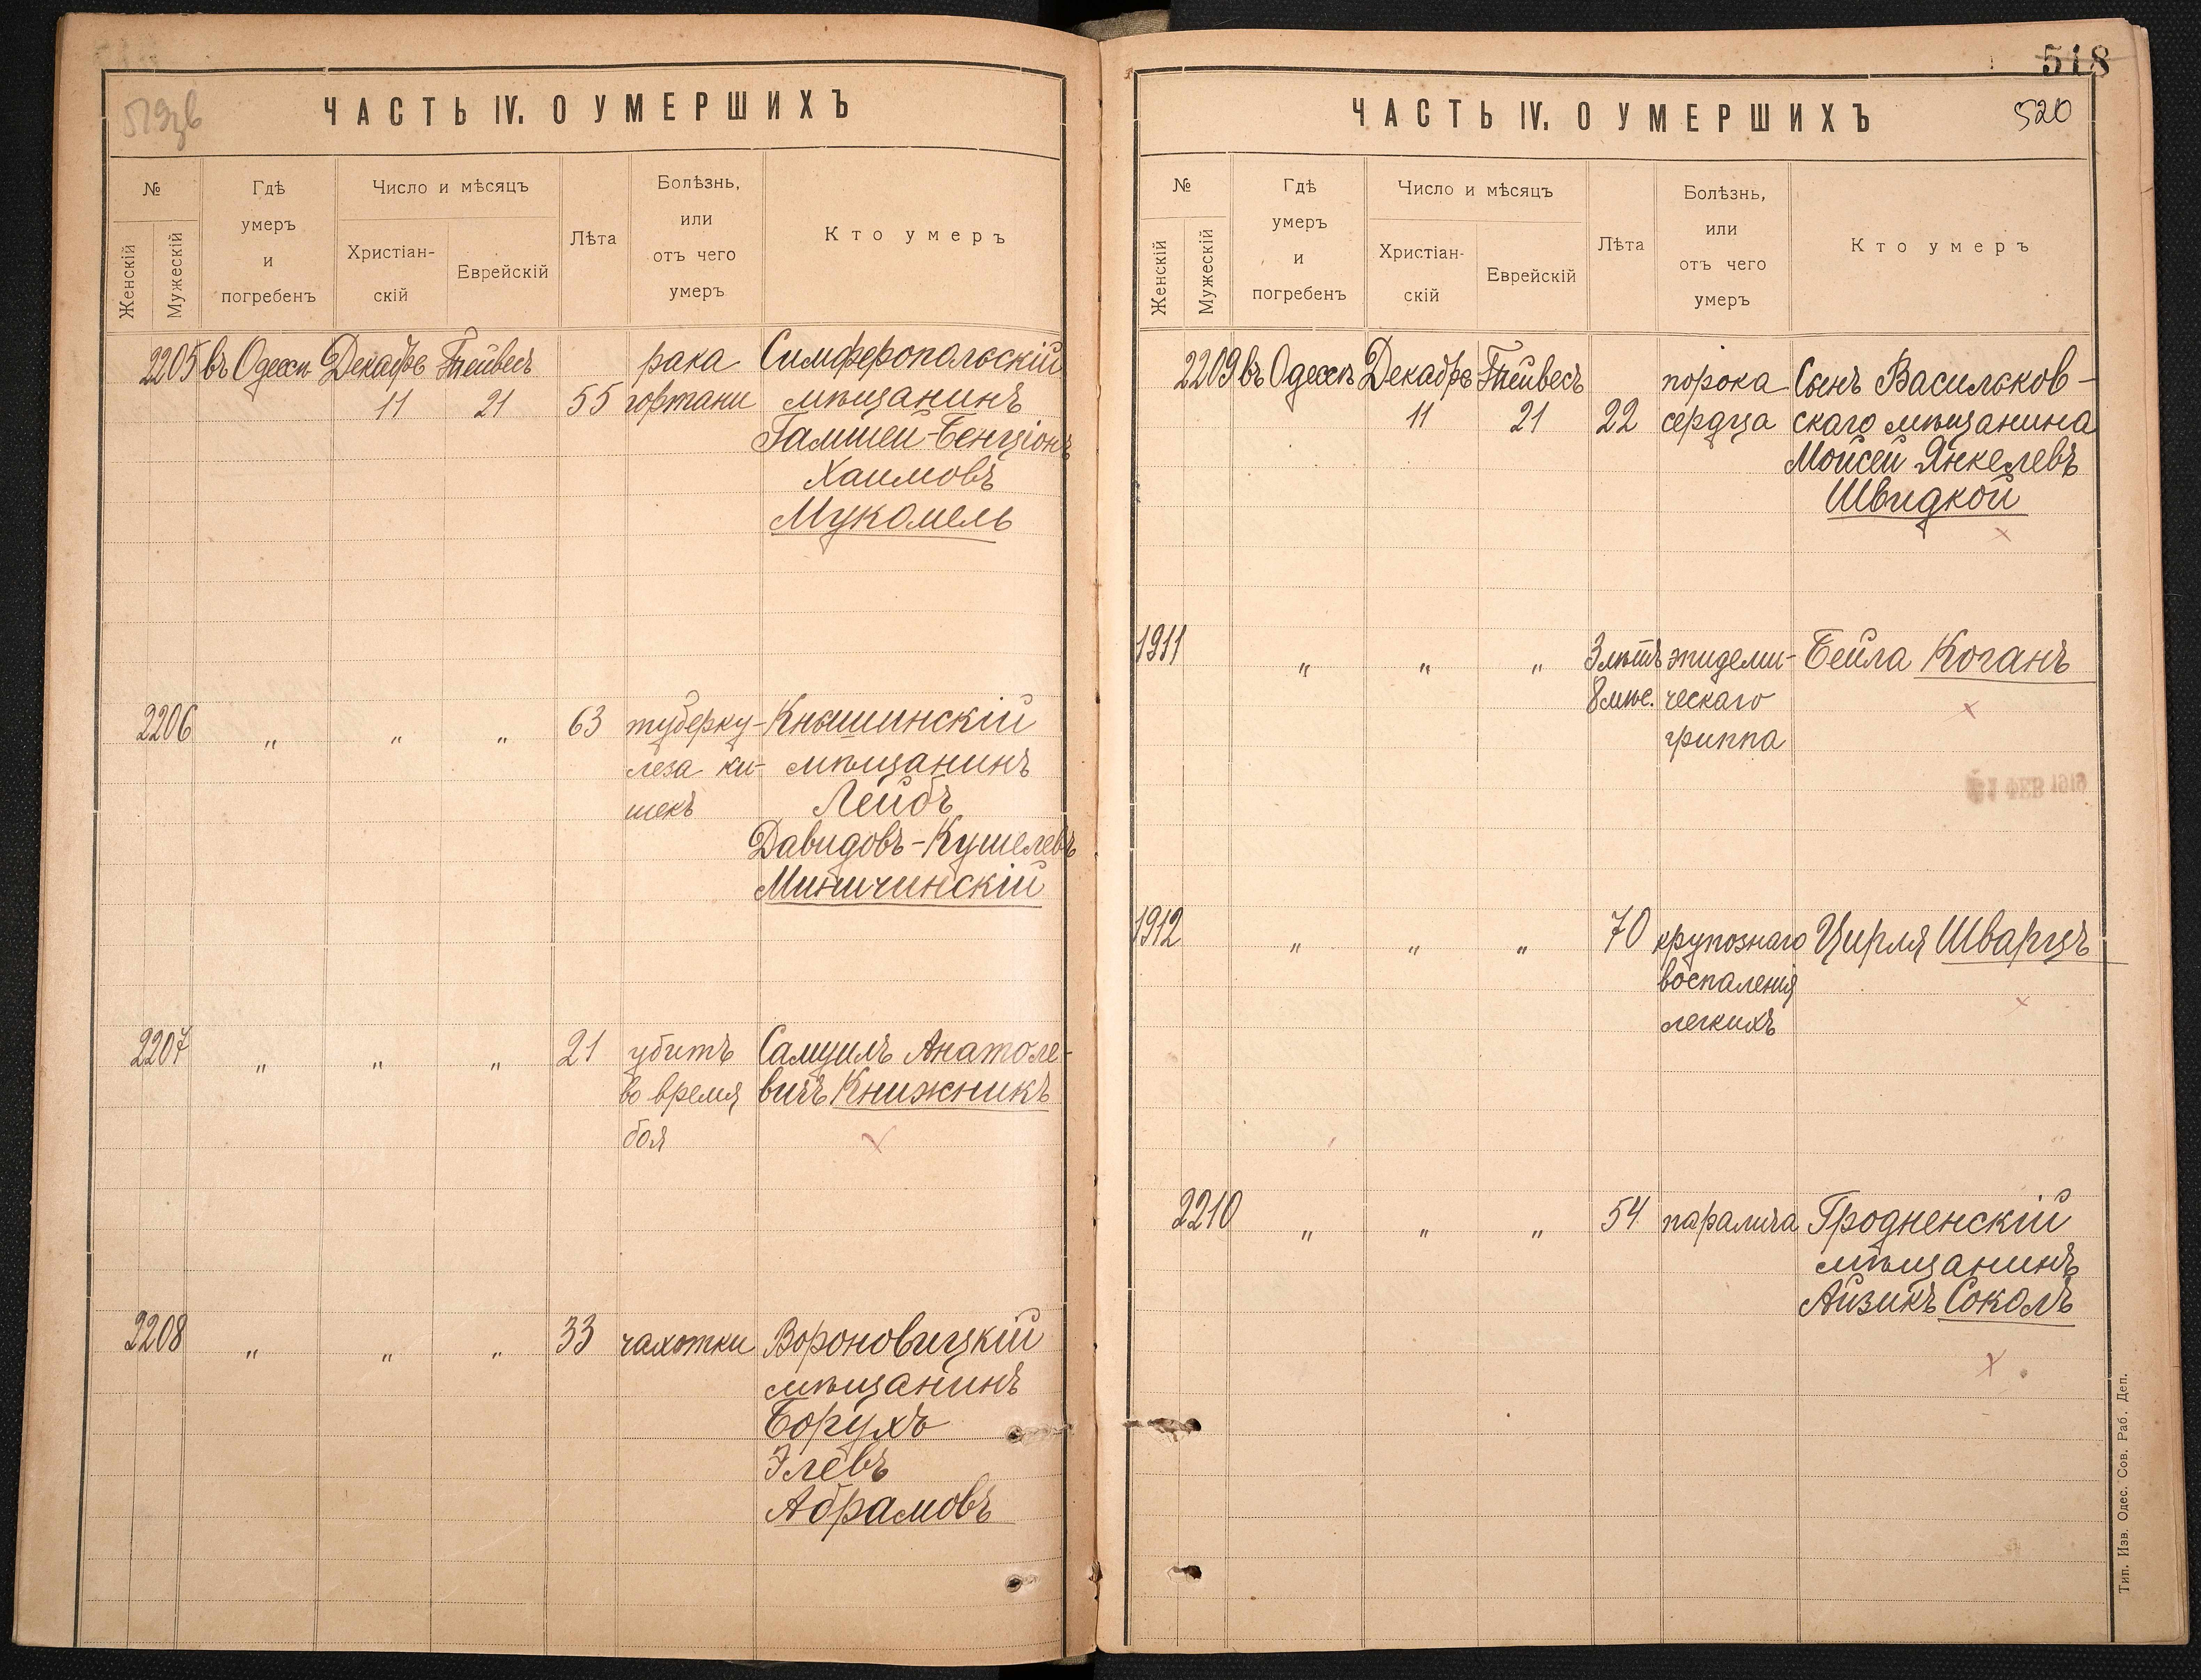 519зв
ЧАСТЬ IV. О УМЕРШИХЪ
№
Женскій
Мужескій
Гдѣ
умеръ
и
погребенъ
Число и мѣсяцъ
Христіан-
скій
Еврейскій
Лѣта
Болѣзнь,
или
отъ чего
умеръ
Кто умеръ
2205 въ Одессѣ Декабрь Тейвесъ рака Симферопольскій
11 21 55 гортани мѣщанинъ
Гамшей-Бенціонъ
Хаимовъ
Мукомель
2206 „ „ „ 63 туберку- Кнышинскій
леза ки- мѣщанинъ
шекъ Лейбъ
Давидовъ-Кушелевъ
Миничинскій
2207 „ „ „ 21 убитъ Самуилъ Анатоле-
во время вичъ Книжникъ
боя
2208 „ „ „ 33 чахотки Вороновицкій
мѣщанинъ
Борухъ
Элевъ
Абрамовъ
518
ЧАСТЬ IV. О УМЕРШИХЪ
520
№
Женскій
Мужескій
Гдѣ
умеръ
и
погребенъ
Число и мѣсяцъ
Христіан-
скій
Еврейскій
Лѣта
Болѣзнь,
или
отъ чего
умеръ
Кто умеръ
2209 въ Одессѣ Декабрь Тейвесъ порока Сынъ Васильков-
11 21 22 сердца скаго мѣщанина
Мойсей Янкелевъ
Швидкой
1911 „ „ „ 3 лѣтъ эпидеми- Бейла Коганъ
8 мѣс. ческаго
гриппа
1912 „ „ „ 70 крупознаго Цирля Шварцъ
воспаленія
легкихъ
2210 „ „ „ 54 паралича Гродненскій
мѣщанинъ
Айзикъ Соколъ
Тип. Изв. Одес. Сов. Раб. Деп.